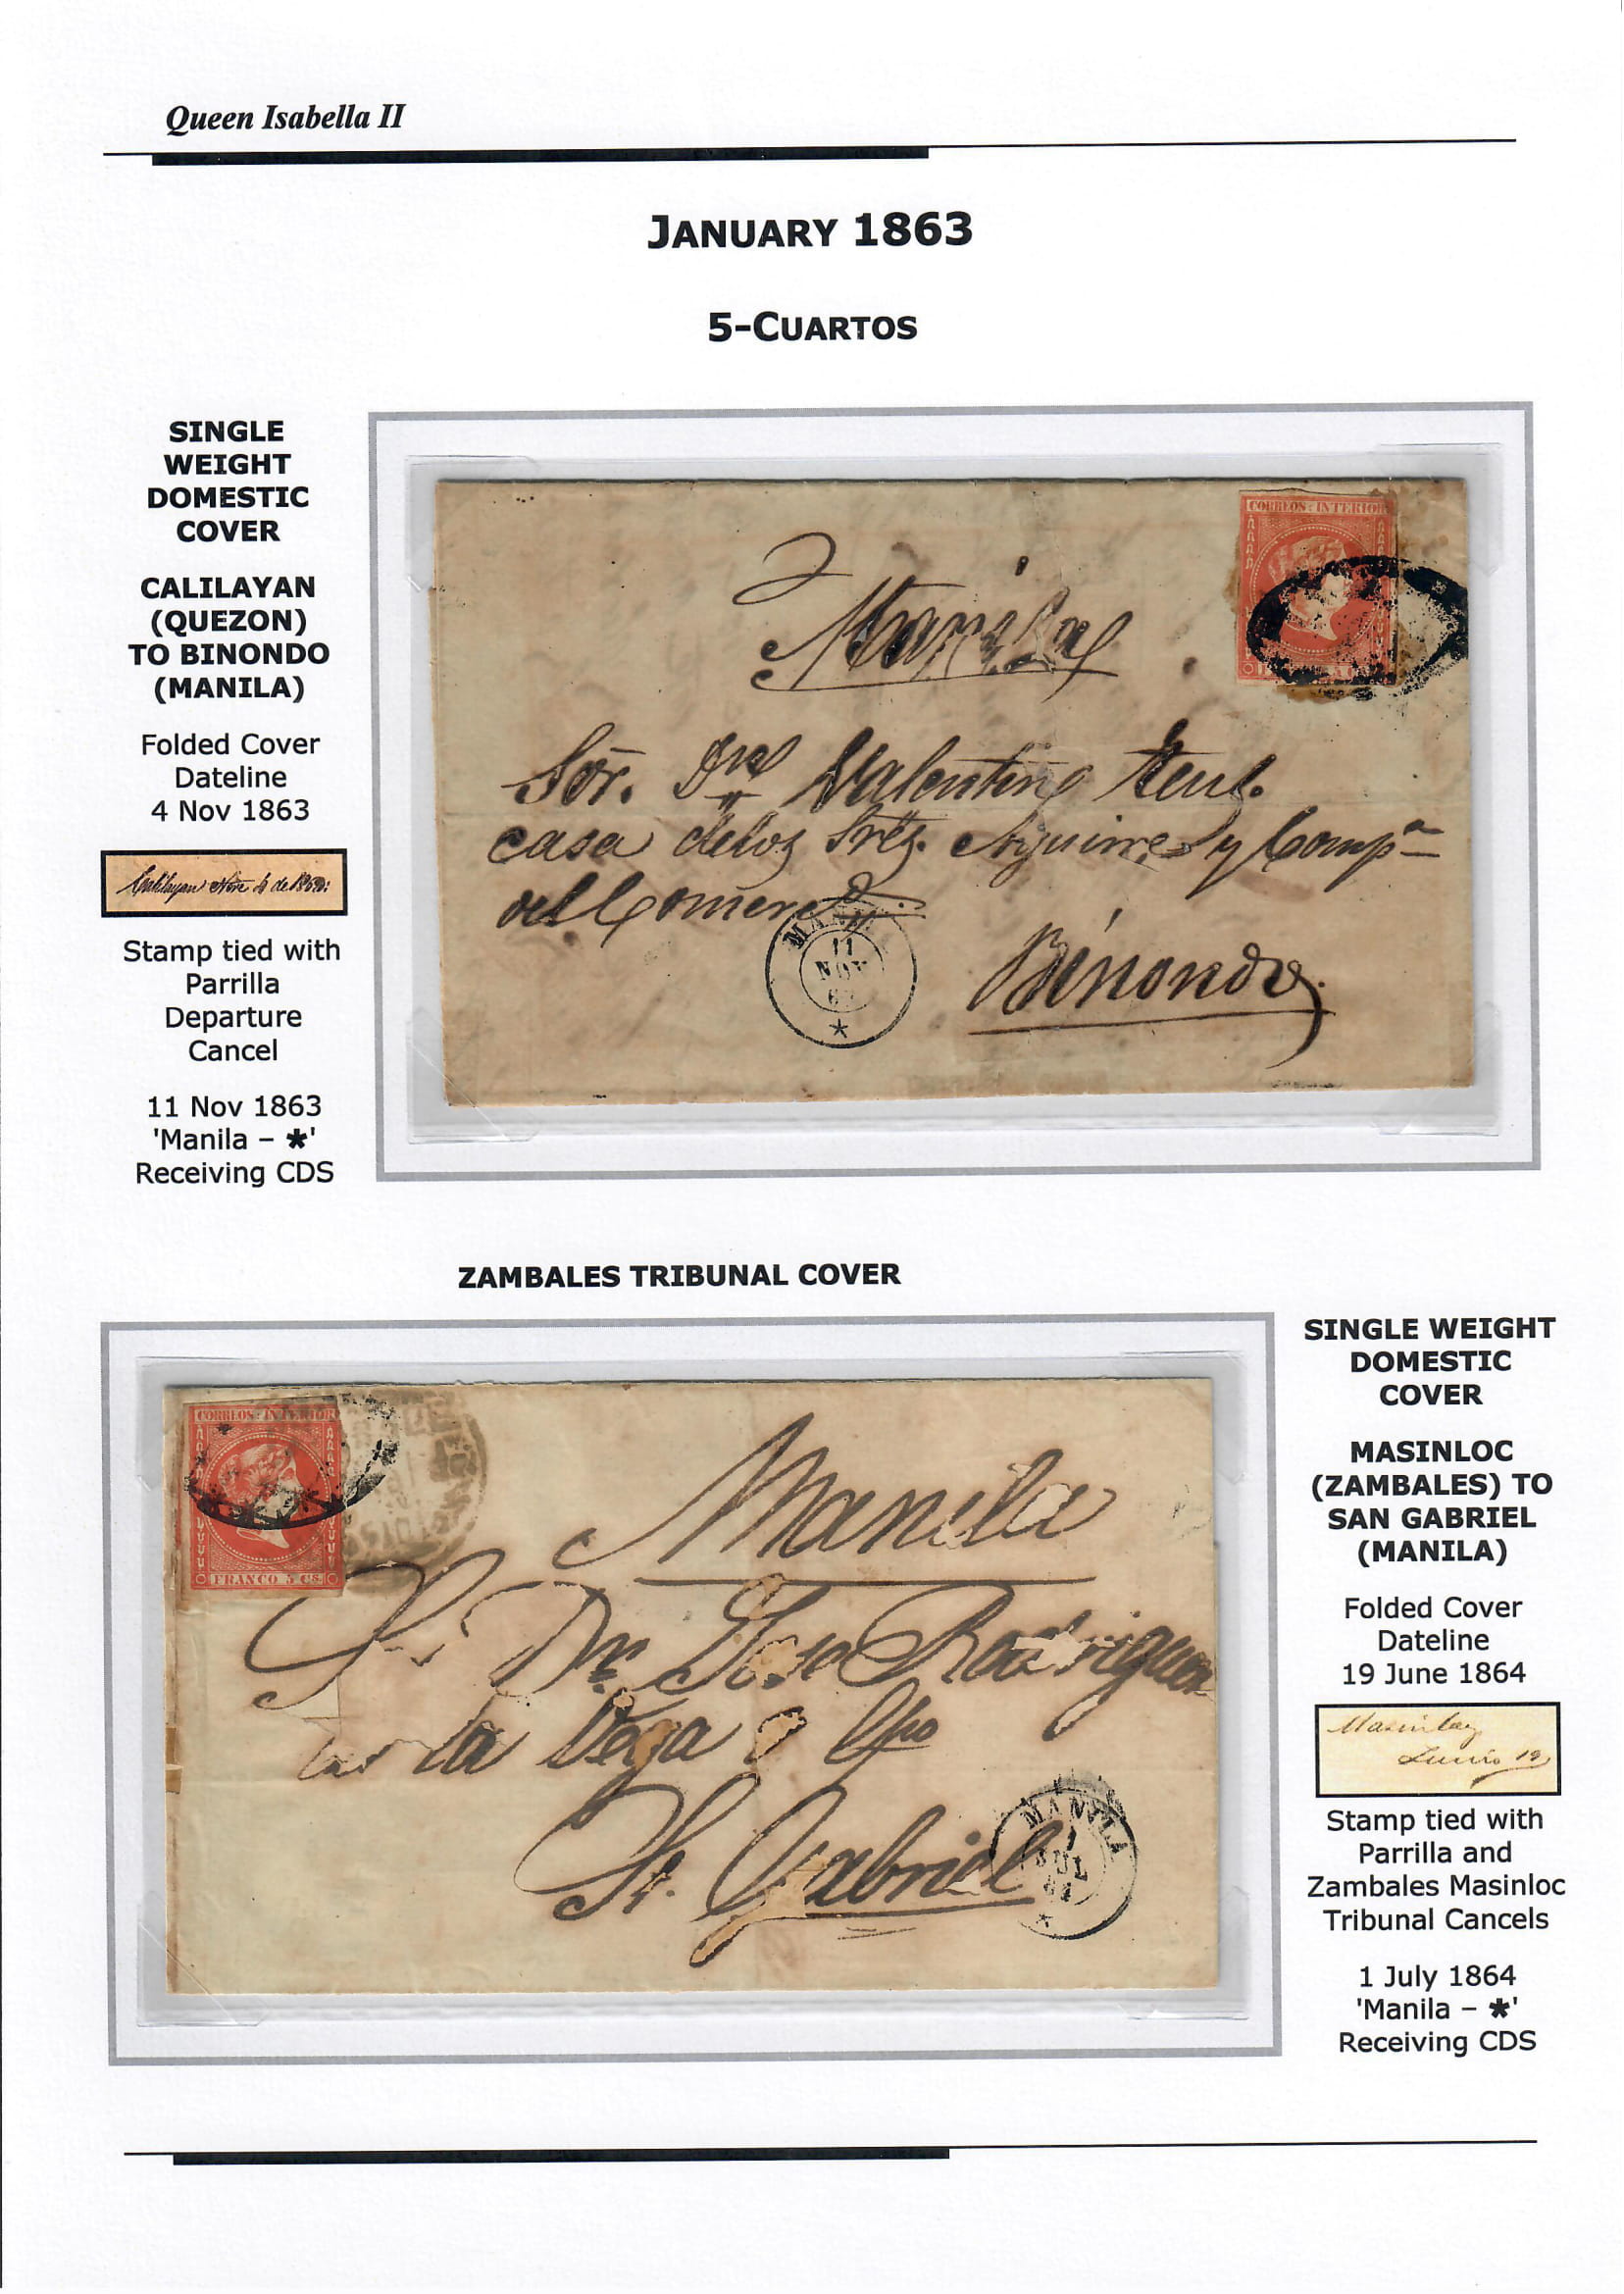 Queen Isabella II
JANUARY 1863
5-CUARTOS
SINGLE
WEIGHT
DOMESTIC
COVER
CALILAYAN
(QUEZON)
TO BINONDO
(MANILA)
Folded Cover
Dateline
4 Nov 1863
Calilayan Nov 4 de
Stamp tied with
Parrilla
Departure
Cancel
11 Nov 1863
'Manila – *'
Receiving CDS
CORREOS INTERIOR
Manila
Sor. Dn Valentino
casa delos Sres. Aguirre y Compa
del Comercio
MANILA
11
NOV
*
Binondo.
ZAMBALES TRIBUNAL COVER
CORREOS INTERIOR
FRANCO 5 CS.
Manila
Sr Dn Jose Rodriguez
la Vega
Sn. Gabriel
MANILA
1
JUL
*
SINGLE WEIGHT
DOMESTIC
COVER
MASINLOC
(ZAMBALES) TO
SAN GABRIEL
(MANILA)
Folded Cover
Dateline
19 June 1864
Masinloc
Junio 19
Stamp tied with
Parrilla and
Zambales Masinloc
Tribunal Cancels
1 July 1864
'Manila – *'
Receiving CDS